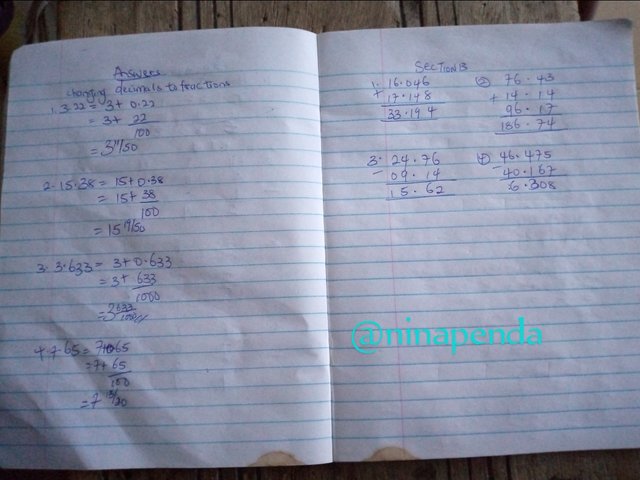 Answers
Changing decimals to fractions
1. 3.22 = 3 + 0.22
= 3 + 22
100
= 3 11/50
2. 15.38 = 15 + 0.38
= 15 + 38
100
= 15 19/50
3. 3.633 = 3 + 0.633
= 3 + 633
1000
= 3 633/1000//
4 7.65 = 7+065
= 7 + 65
100
= 7 13/20
SECTION B
1. 16.046
+ 17.148
33.194
② 76.43
+ 14.14
96.17
186.74
3. 24.76
- 09.14
15.62
④ 46.475
- 40.167
6.308
@ninapenda